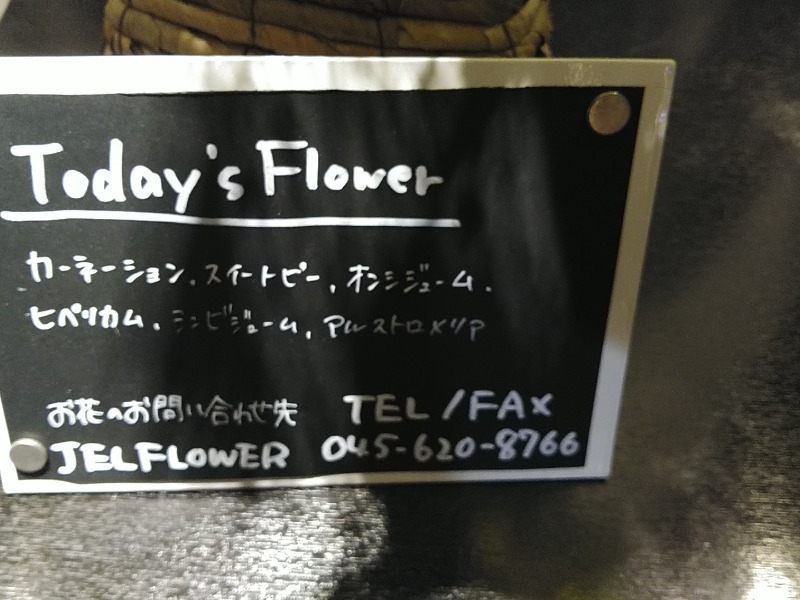 Today's Flower
カーネーション、スイートピー、オンシジューム、
ヒペリカム、シンビジューム、アルストロメリア
お花のお問い合わせ先 TEL/FAX
JELFLOWER 045-620-8766